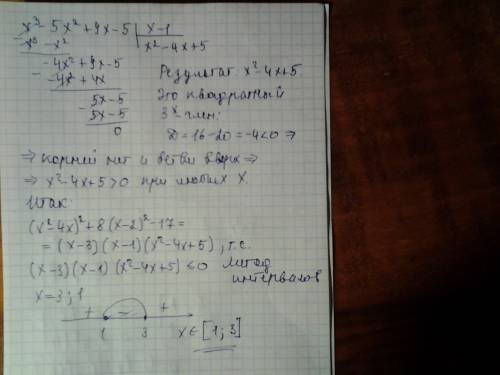 x³-5x²+9x-5 | x-1
- x³-x² | x²-4x+5
-4x²+9x-5
- -4x²+4x
5x-5
- 5x-5
0
Результат x²-4x+5
это квадратный
3х-член:
D=16-20=-4<0 ⇒
⇒ корней нет и ветви вверх ⇒
⇒ x²-4x+5>0 при любых x.
Итак
(x²-4x)²+8(x-2)²-17=
=(x-3)(x-1)(x²-4x+5), т.е.
(x-3)(x-1)(x²-4x+5)≤0 Метод
интервалов
x=3; 1
+ - +
1 3 x∈[1; 3]